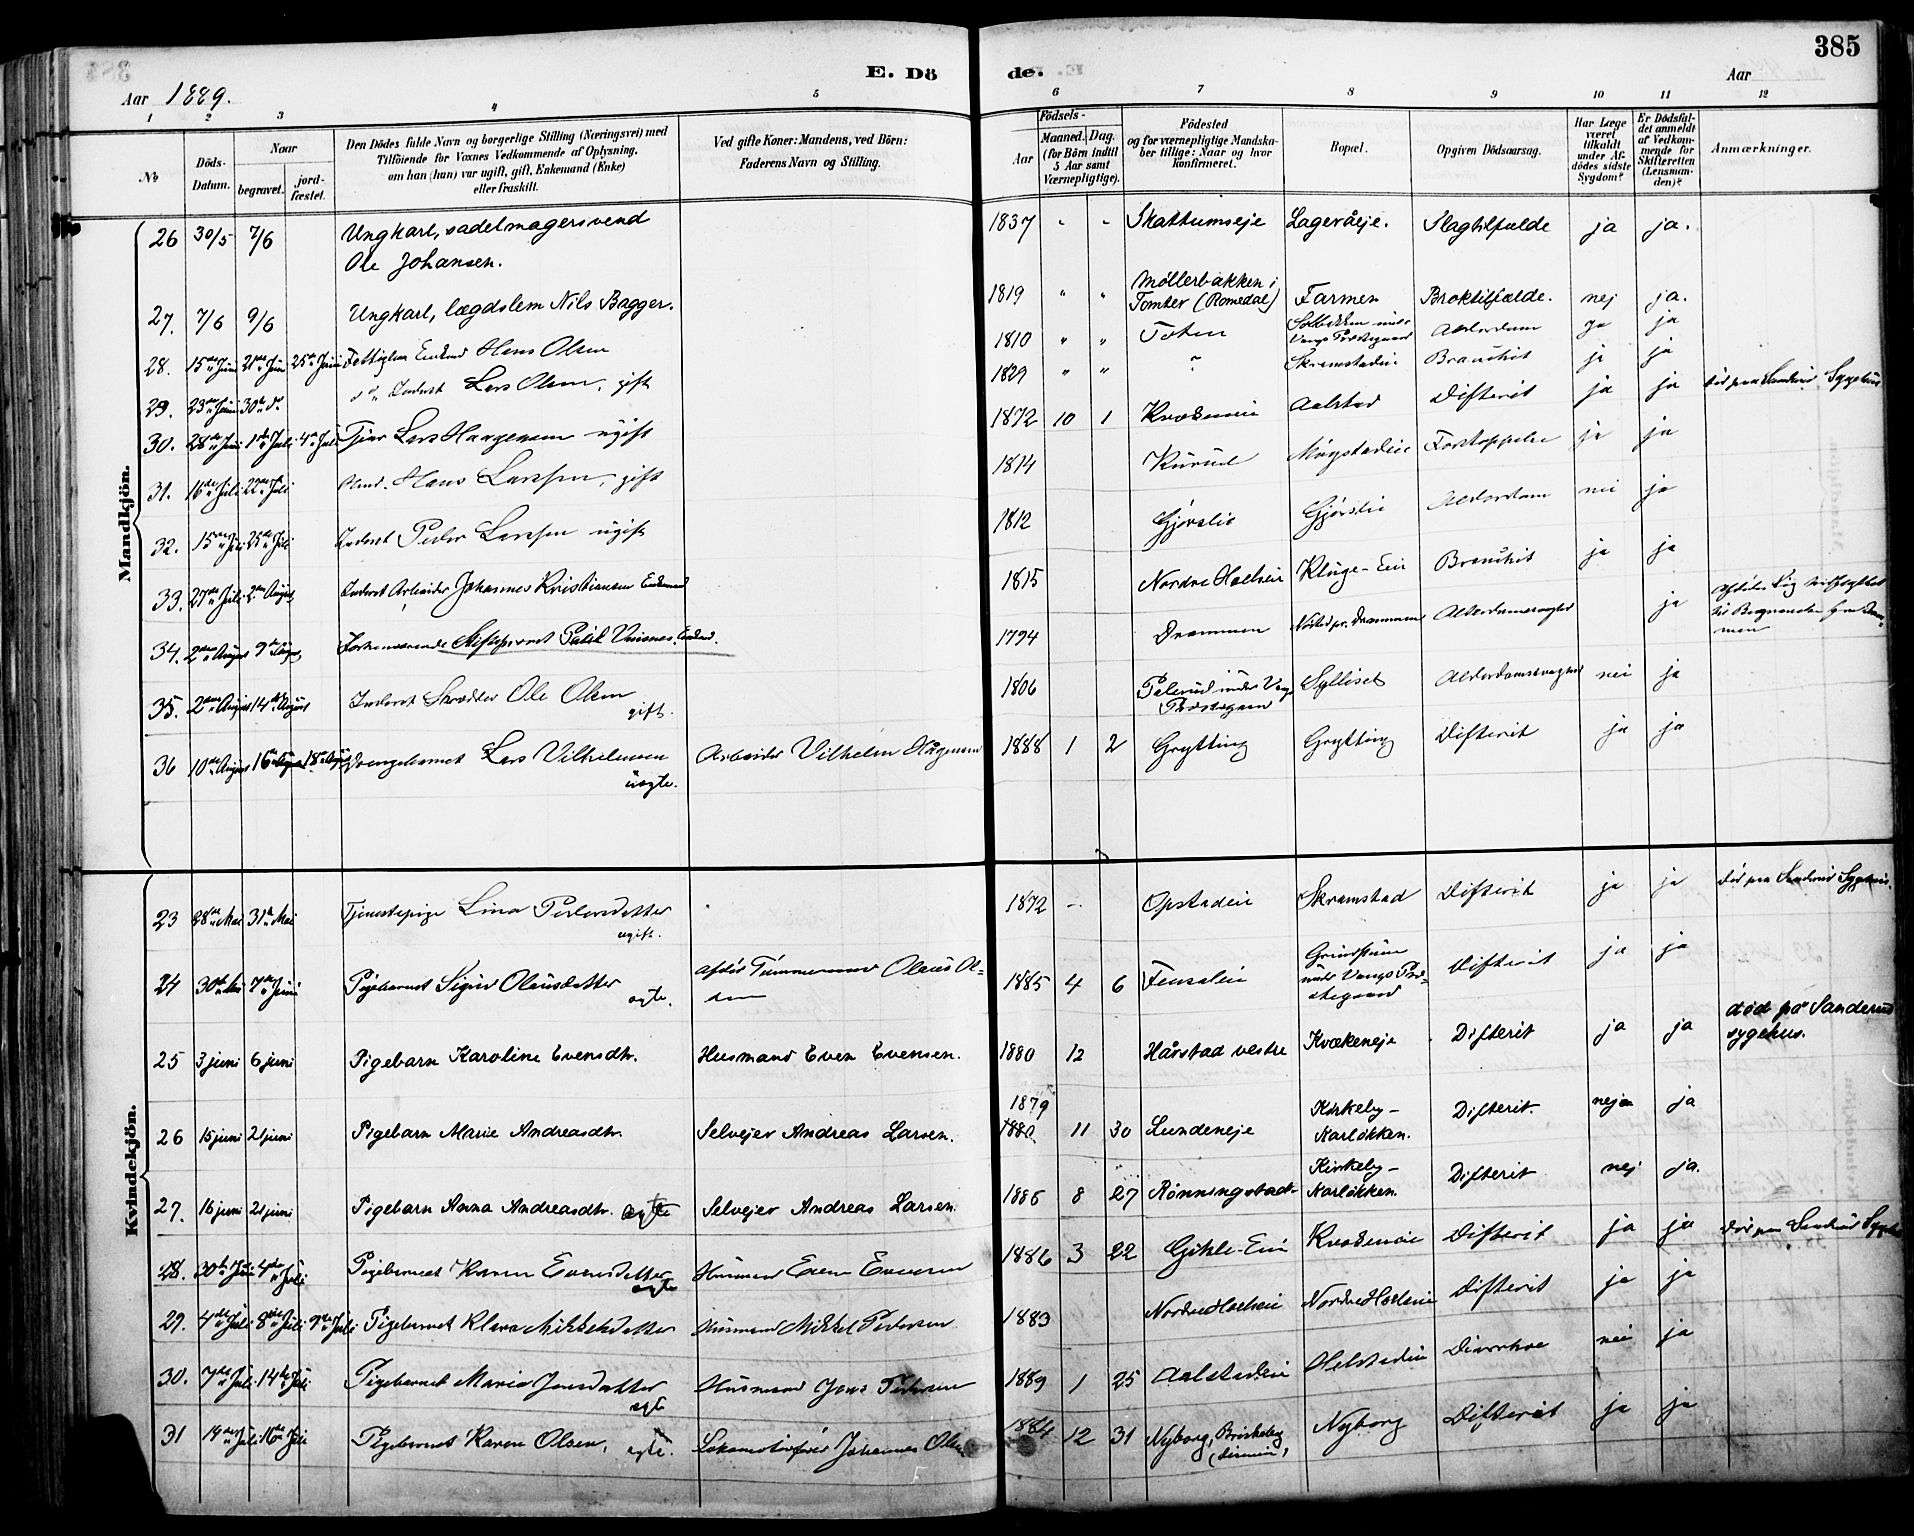 385
E. Dö
de.
Aar 1889.
Aar
1 2 3 4 5 6 7 8 9 10 11 12
No
Döds-Datum.
Naar
begravet.
jord-fæstet.
Den Dödes fulde Navn og borgerlige Stilling (Næringsvei) med
Tilföiende for Voxnes Vedkommende af Oplysning,
om han (hun) var ugift, gift, Enkemand (Enke)
eller fraskilt.
Ved gifte Koner: Mandens, ved Börn:
Faderens Navn og Stilling.
Födsels-
Aar
Maaned. Dag.
(for Börn indtil
5 Aar samt
Værnepligtige).
Födested
og for værnepligtige Mandska-
ber tillige: Naar og hvor
konfirmeret.
Bopæl.
Opgiven Dödsaarsag.
Har Læge
været
tilkaldt
under Af-
dödes sidste
Sygdom?
Er Dödsfal-
det anmeldt
af Vedkom-
mende for
Skifteretten
(Lensman-
den)?
Anmærkninger.
Mandkjön.
26 30/5 7/6 Ungkarl, sadelmagersvend
Ole Johansen. 1837 - - Skattumseje Lageråeje. Slagtilfælde ja ja.
27. 7/6 9/6 Ungkarl, lægdslem Nils Bagger. 1819 " " Møllerbakken i
Tomter (Romedal) Farmen Broktilfælde. nej ja.
28. 15de Juni 21de Juni 25de Juni Enkmd Hans Olsen 1810 " " Toten Alderdom ja ja
29. 23de Juni 30te do do Inderst Lars Olsen, gift 1829 " " Skramstadeie Bronchit ja ja
30. 28de Juni 1ste Juli 4de Juli Tjener Lars ugift 1872 10 1 Kvækeneie Aalstad Difterit ja ja død paa Sanderud Sygehus
31. 16de Juli 22de Juli Hans Larssen, gift 1814 Kurud Forstoppelse ja ja
32. 15de Juli 25de Juli Inderst Peder Larssen ugift 1812 Gjørslie Gjørslie Alderdom nei ja
33. 27de Juli 2den August Inderst Arbeider Johannes Kristiansen Enkemand 1815 Nordre Kluge-Eie Bronchit ja ja
34. 2den August 9de August Forhenværende Stiftsprovst Enkmd. 1794 Drammen Drammen Alderdomssvaghed ja
35. 2den August 14de August Inderst Skrædder Ole Olsen
gift. 1806 under Vangs
Præstegaard Sylliset Alderdomssvaghed nei ja
36 10de August 16de August 18de August Drengebarnet Lars Vilhelmsen
uægte. Arbeider Vilhelm Hågensen 1888 1 2 Grytting Grytting Difterit ja ja
Kvindekjön.
23 28de Mai 31te Mai Tjenestepige Lina Pedersdatter
ugift. 1872 - Opstadeie Skramstad Difterit ja ja død paa Sanderud Sygehus.
24 30te Mai 7de Juni Pigebarnet Sigrid Olausdatter
ægte. afdøde Tømmermand Olaus Ol-
sen 1885 4 6 Fensaleie
under Vangs Præ-
stegaard Difterit ja ja
25 3 juni 6 juni Pigebarn Karoline Evensdtr. Husmand Even Evensen. 1880 12 Hårstad vestre Kvækeneje Difterit ja ja død på Sanderud
sygehus.
26 15 juni 21 juni Pigebarn Marie Andreasdtr. Selvejer Andreas Larsen. 1879
1880 11 30 Lundeneje Kirkeby-
Karløkken. Difterit. nej ja
27. 16 juni 21 juni Pigebarn Anna Andreasdtr. ægte Selvejer Andreas Larsen. 1885 8 27 Rønningstad Kirkeby-
Karløkken. Difterit nej ja.
28. 30te Juni 4de Juli Pigebarnet Karen Evensdatter
ægte Husmand Even Evensen 1886 3 22 Gihle-Eie Kvækeneie Difterit ja ja død paa Sanderud Sygehus
29. 4de Juli 8de Juli 9de Juli Pigebarnet Klara Mikkelsdatter Husmand Mikkel Pedersen 1883 Difterit ja ja
30. 7de Juli 14de Juli Pigebarnet Maria Jensdatter
ægte Husmand Jens Pedersen 1889 1 25 Aalstadeie Diarrhoe nei ja
31 14de Juli 16de Juli Pigebarnet Karen Olsen, ægte. Lokomotivfører Johannes Olsen 1884 12 31 Nyborg, Briskeby Nyborg Difterit ja ja